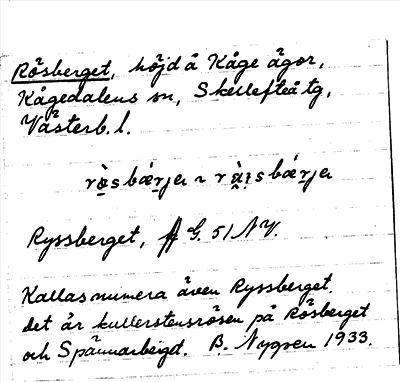 Rösberget, höjd å Kåge ägor,
Kågedalens sn, Skellefteå tg,
Västerb. l.
rò̤sbǽrjər ~ rṳ̀i̤sbǽrjə
Ryssberget, G. 51 NV.
Kallas numera även Ryssberget,
det är kullerstensrösen på Rösberget
och Spännarberget. B. Nygren 1933.